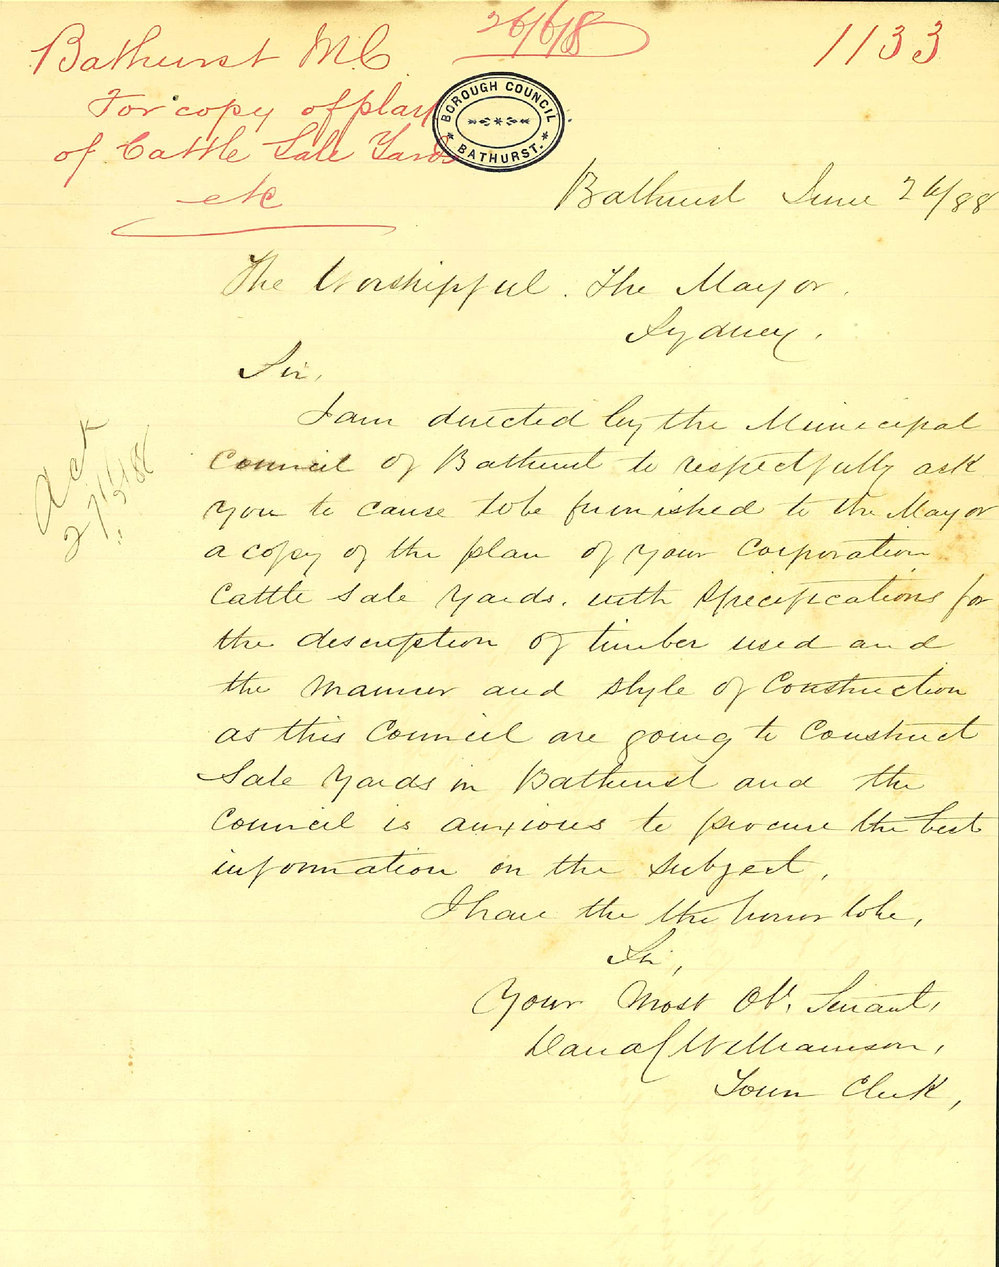 Bathurst M.C. 26/6/88 1133
For copy of plan
of Cattle Sale Yards
etc
BOROUGH COUNCIL
BATHURST.
Bathurst June 26/88
The Worshipful. The Mayor.
Sydney.
Sir,
I am directed by the Municipal
Council of Bathurst to respectfully ask
you to cause to be furnished to the Mayor
a copy of the plan of your Corporation
Cattle Sale Yards. with specifications for
the description of timber used and
the manner and style of Construction
as this Council are going to Construct
Sale Yards in Bathurst and the
Council is anxious to procure the best
information on the subject,
I have the the honor to be,
Sir,
Your Most Obt. Servant,
Williamson,
Town Clerk,
Ack
27/6/88